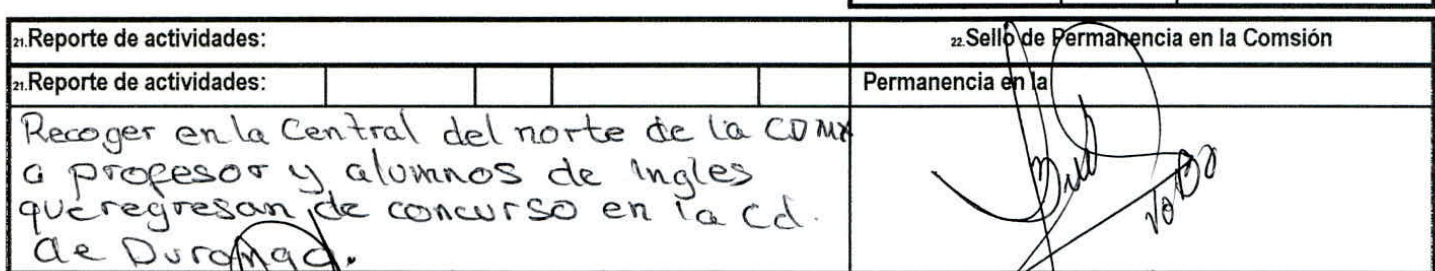 21.Reporte de actividades:
22.Sello de Permanencia en la Comsión
21.Reporte de actividades:
Permanencia en la
Recoger en la Central del norte de la CDMX
a profesor y alumnos de Ingles
que regresan de concurso en la cd.
de Durango.
VoBo